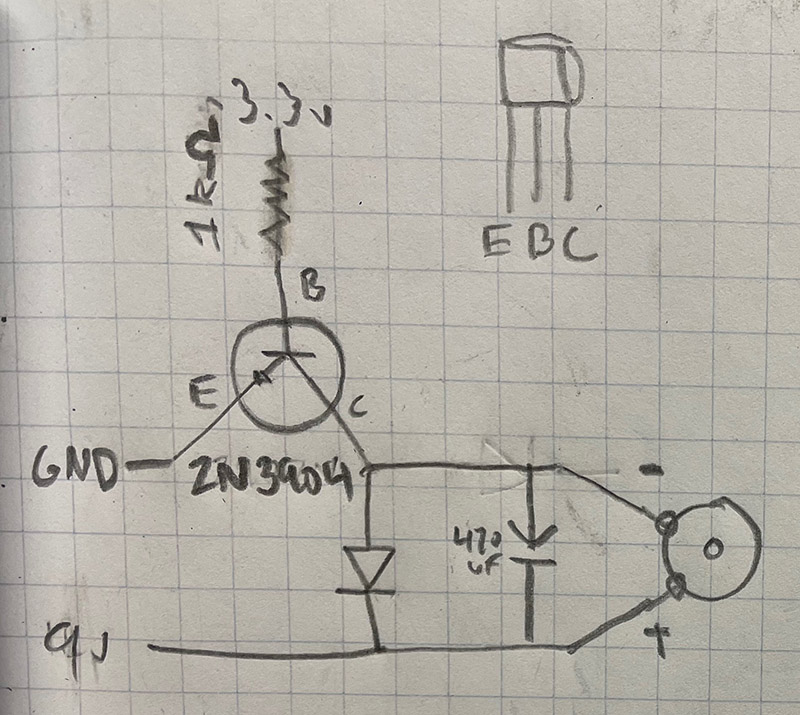 3.3v
1kΩ
E B C
B
E
C
GND
2N3904
-
470
uF
9v
+